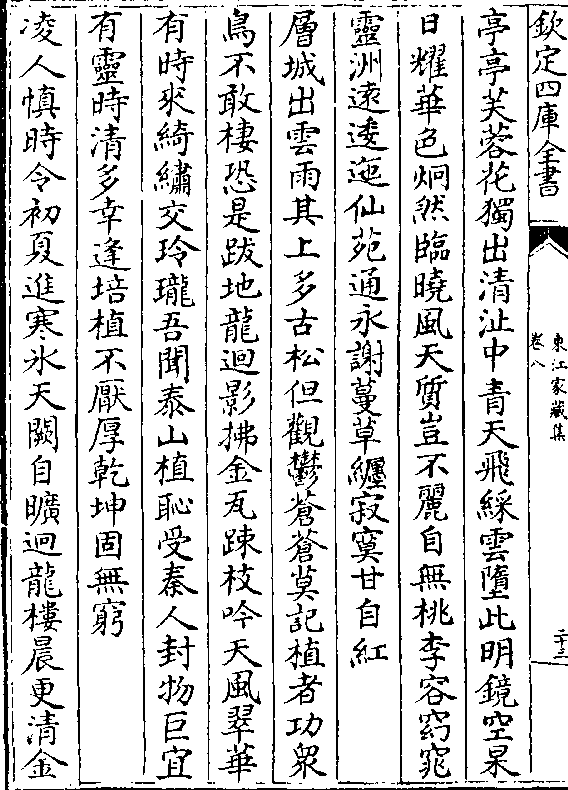 欽定四庫全書
東江家藏集
卷八
二十三
亭亭芙蓉花獨出清沚中青天飛綵雲墮此明鏡空杲
日耀華色炯然臨曉風天質豈不麗自無桃李容窈窕
靈洲遠逶迤仙苑通永謝蔓草纏寂寞甘自紅
層城出雲雨其上多古松但觀鬱蒼蒼莫記植者功眾
鳥不敢棲恐是跋地龍迴影拂金瓦疎枝吟天風翠華
有時來綺繡交玲瓏吾聞泰山植恥受秦人封物巨宜
有靈時清多幸逢培植不厭厚乾坤固無窮
凌人慎時令初夏進寒氷天闕自曠迥龍樓晨更清金